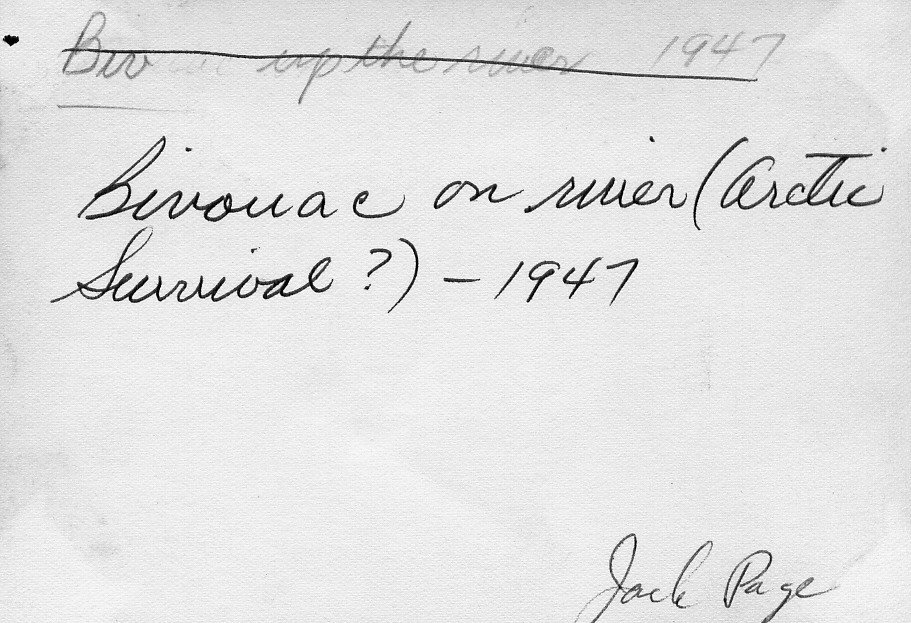 Biv up the river 1947
Bivouac on river (Arctic
Survival ?) – 1947
Jack Page